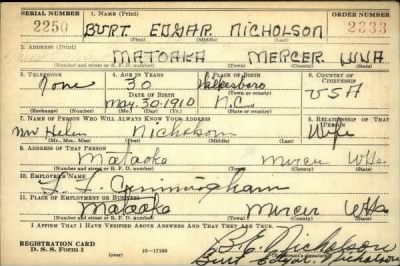 SERIAL NUMBER 1. NAME (Print) ORDER NUMBER
2250 BURT EDGAR NICHOLSON 2333
(First) (Middle) (Last)
2. ADDRESS (Print)
MATOAKA MERCER W.VA
(Number and street or R. F. D. number) (Town) (County) (State)
3. TELEPHONE 4. AGE IN YEARS 5. PLACE OF BIRTH 6. COUNTRY OF CITIZENSHIP
None 30
DATE OF BIRTH (Town or county)
May. 30. 1910 N.C. USA
(Exchange) (Number) (Mo.) (Day) (Yr.) (State or country)
7. NAME OF PERSON WHO WILL ALWAYS KNOW YOUR ADDRESS 8. RELATIONSHIP OF THAT PERSON
Mrs Helen Nicholson Wife
(Mr., Mrs., Miss) (First) (Middle) (Last)
9. ADDRESS OF THAT PERSON
Mataoka Mercer W Va
(Number and street or R. F. D. number) (Town) (County) (State)
10. EMPLOYER'S NAME
Cunningham
11. PLACE OF EMPLOYMENT OR BUSINESS
Mataoka Mercer W Va
(Number and street or R. F. D. number) (Town) (County) (State)
I AFFIRM THAT I HAVE VERIFIED ABOVE ANSWERS AND THAT THEY ARE TRUE.
REGISTRATION CARD
D. S. S. FORM 1 16-17105 B. E. Nicholson
Burt Edgar Nicholson